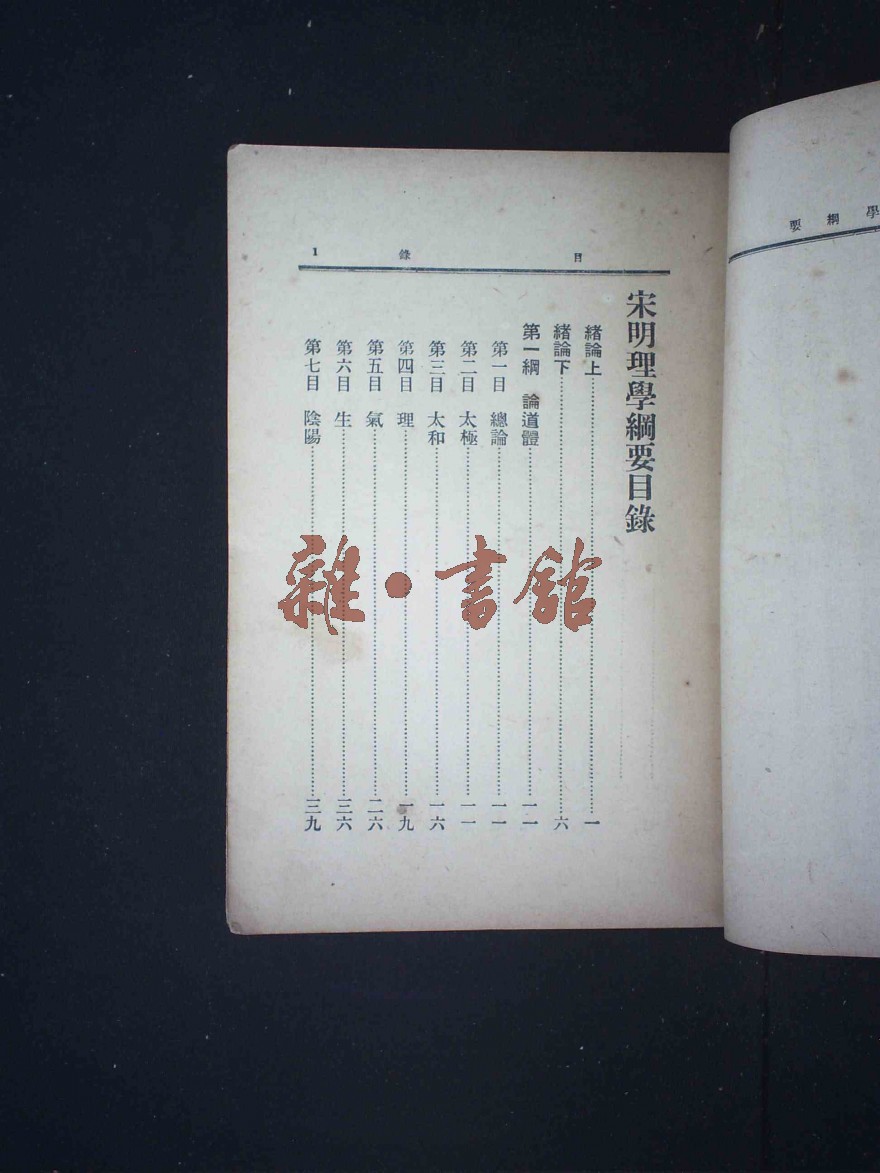 學綱要
目錄 1
宋明理學綱要目錄
緒論上……一
緒論下……六
第一綱 論道體……一一
第一目 總論……一一
第二目 太極……一一
第三目 太和……一六
第四目 理……一九
第五目 氣……二六
第六目 生……三六
第七目 陰陽……三九
雜·書館